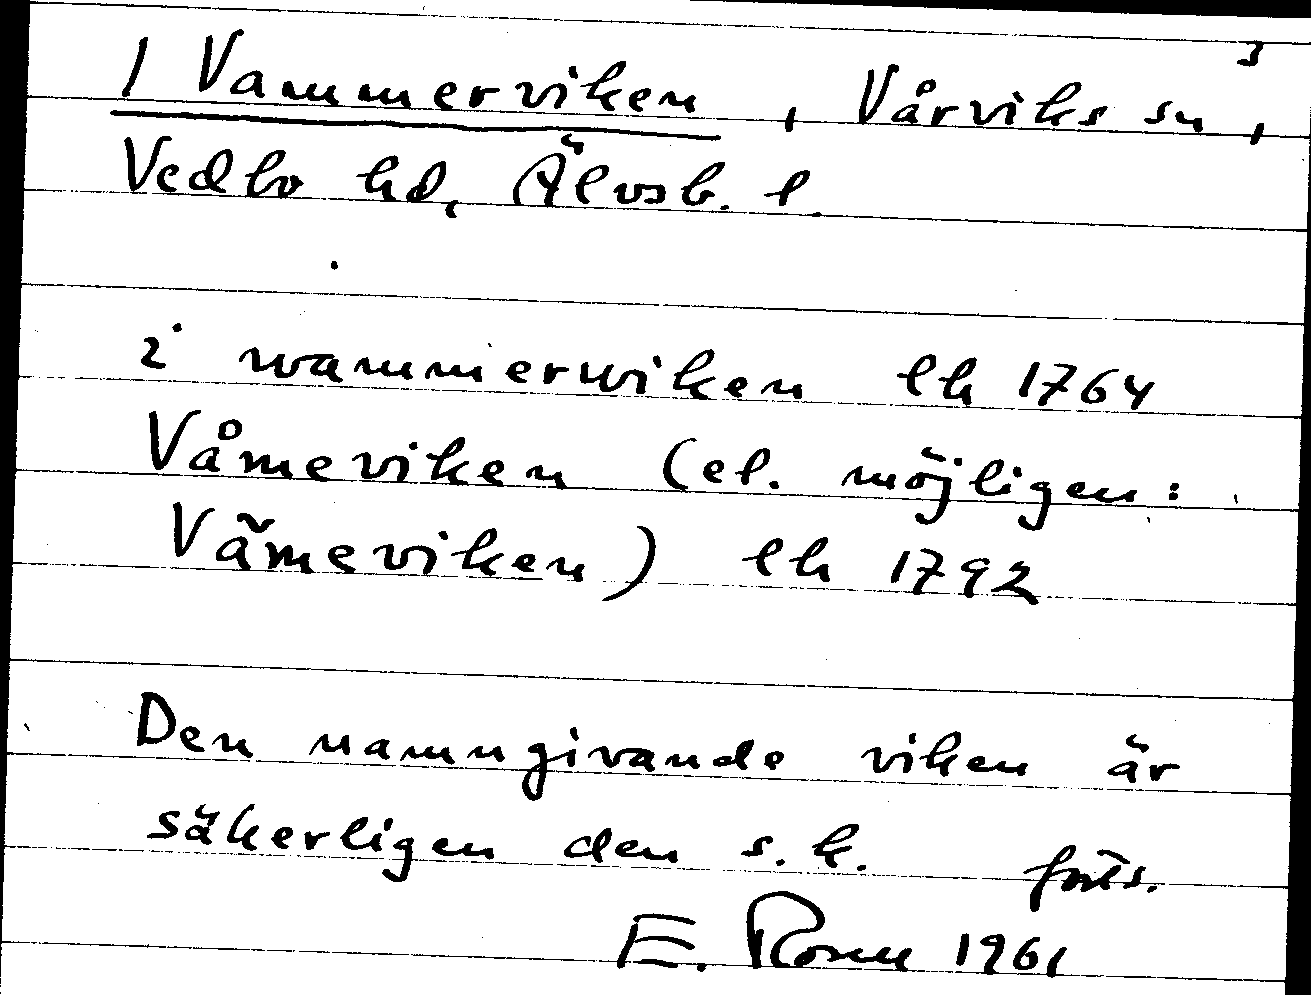 3
/ Vammerviken, Vårviks sn,
Vedbo hd, Älvsb. l.
i wammerwiken lh 1764
Våmeviken (el. möjligen:
Vämeviken) lh 1792
Den namngivande viken är
säkerligen den s.k. forts.
E. 1961